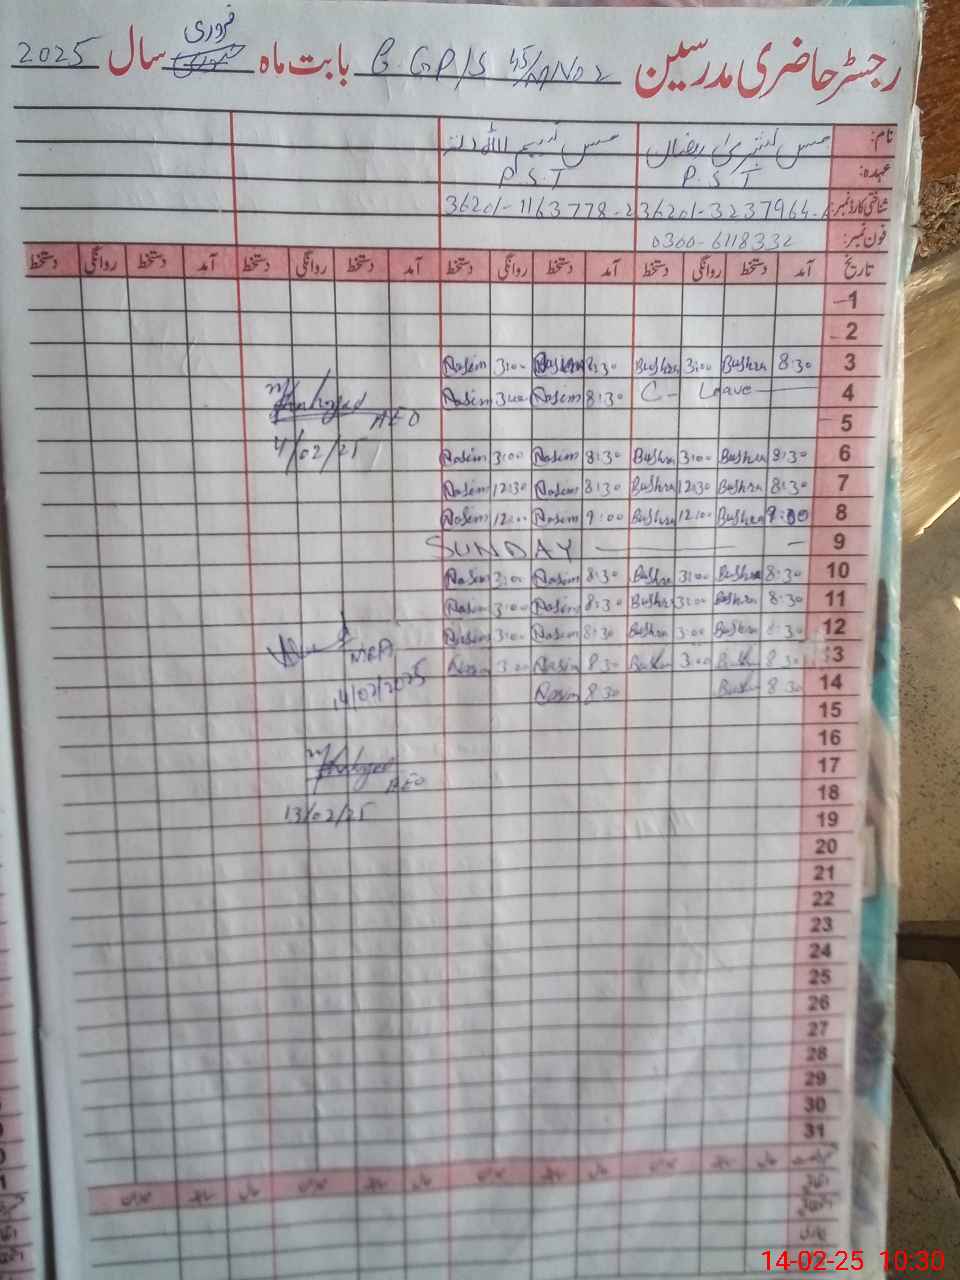 رجسٹر حاضری مدرسین G.GP/S 45/M NO 2 بابت ماہ فروری سال 2025
نام: مس بشریٰ رمضان مس نسیم اللہ دتہ
عہدہ: P.S.T P.S.T
شناختی کارڈ نمبر: 36201-3237964- 36201-1163778-2
فون نمبر: 0300-6118332
تاریخ آمد دستخط روانگی دستخط آمد دستخط روانگی دستخط آمد دستخط روانگی دستخط آمد دستخط روانگی دستخط
1
2
3 8:30 Bushra 3:00 Bushra 8:30 Nasim 3:00 Nasim
4 C- Leave 8:30 Nasim 3:00 Nasim
AEO
5
4/02/25
6 8:30 Bushra 3:00 Bushra 8:30 Nasim 3:00 Nasim
7 8:30 Bushra 12:30 Bushra 8:30 Nasim 12:30 Nasim
8 Bushra 12:00 Bushra 9:00 Nasim 12:00 Nasim
9 SUNDAY
10 8:30 Bushra 3:00 Bushra 8:30 Nasim 3:00 Nasim
11 8:30 Bushra 3:00 Bushra 8:30 Nasim 3:00 Nasim
12 8:30 Bushra 3:00 Bushra 8:30 Nasim 3:00 Nasim
MEA
13 8:30 Bushra 3:00 Bushra 8:30 Nasim 3:00 Nasim
14 8:30 Bushra 8:30 Nasim
14/02/2025
15
16
17
18
AEO
19
13/02/25
20
21
22
23
24
25
26
27
28
29
30
31
14-02-25 10:30